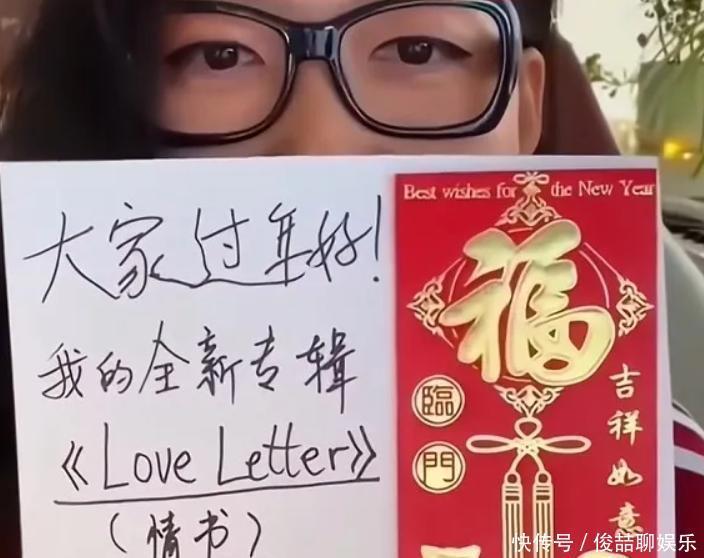 大家过年好!
我的全新专辑
《Love Letter》
(情书)
Best wishes for the New Year
福
臨
門
吉祥如意
快传号/俊喆聊娱乐